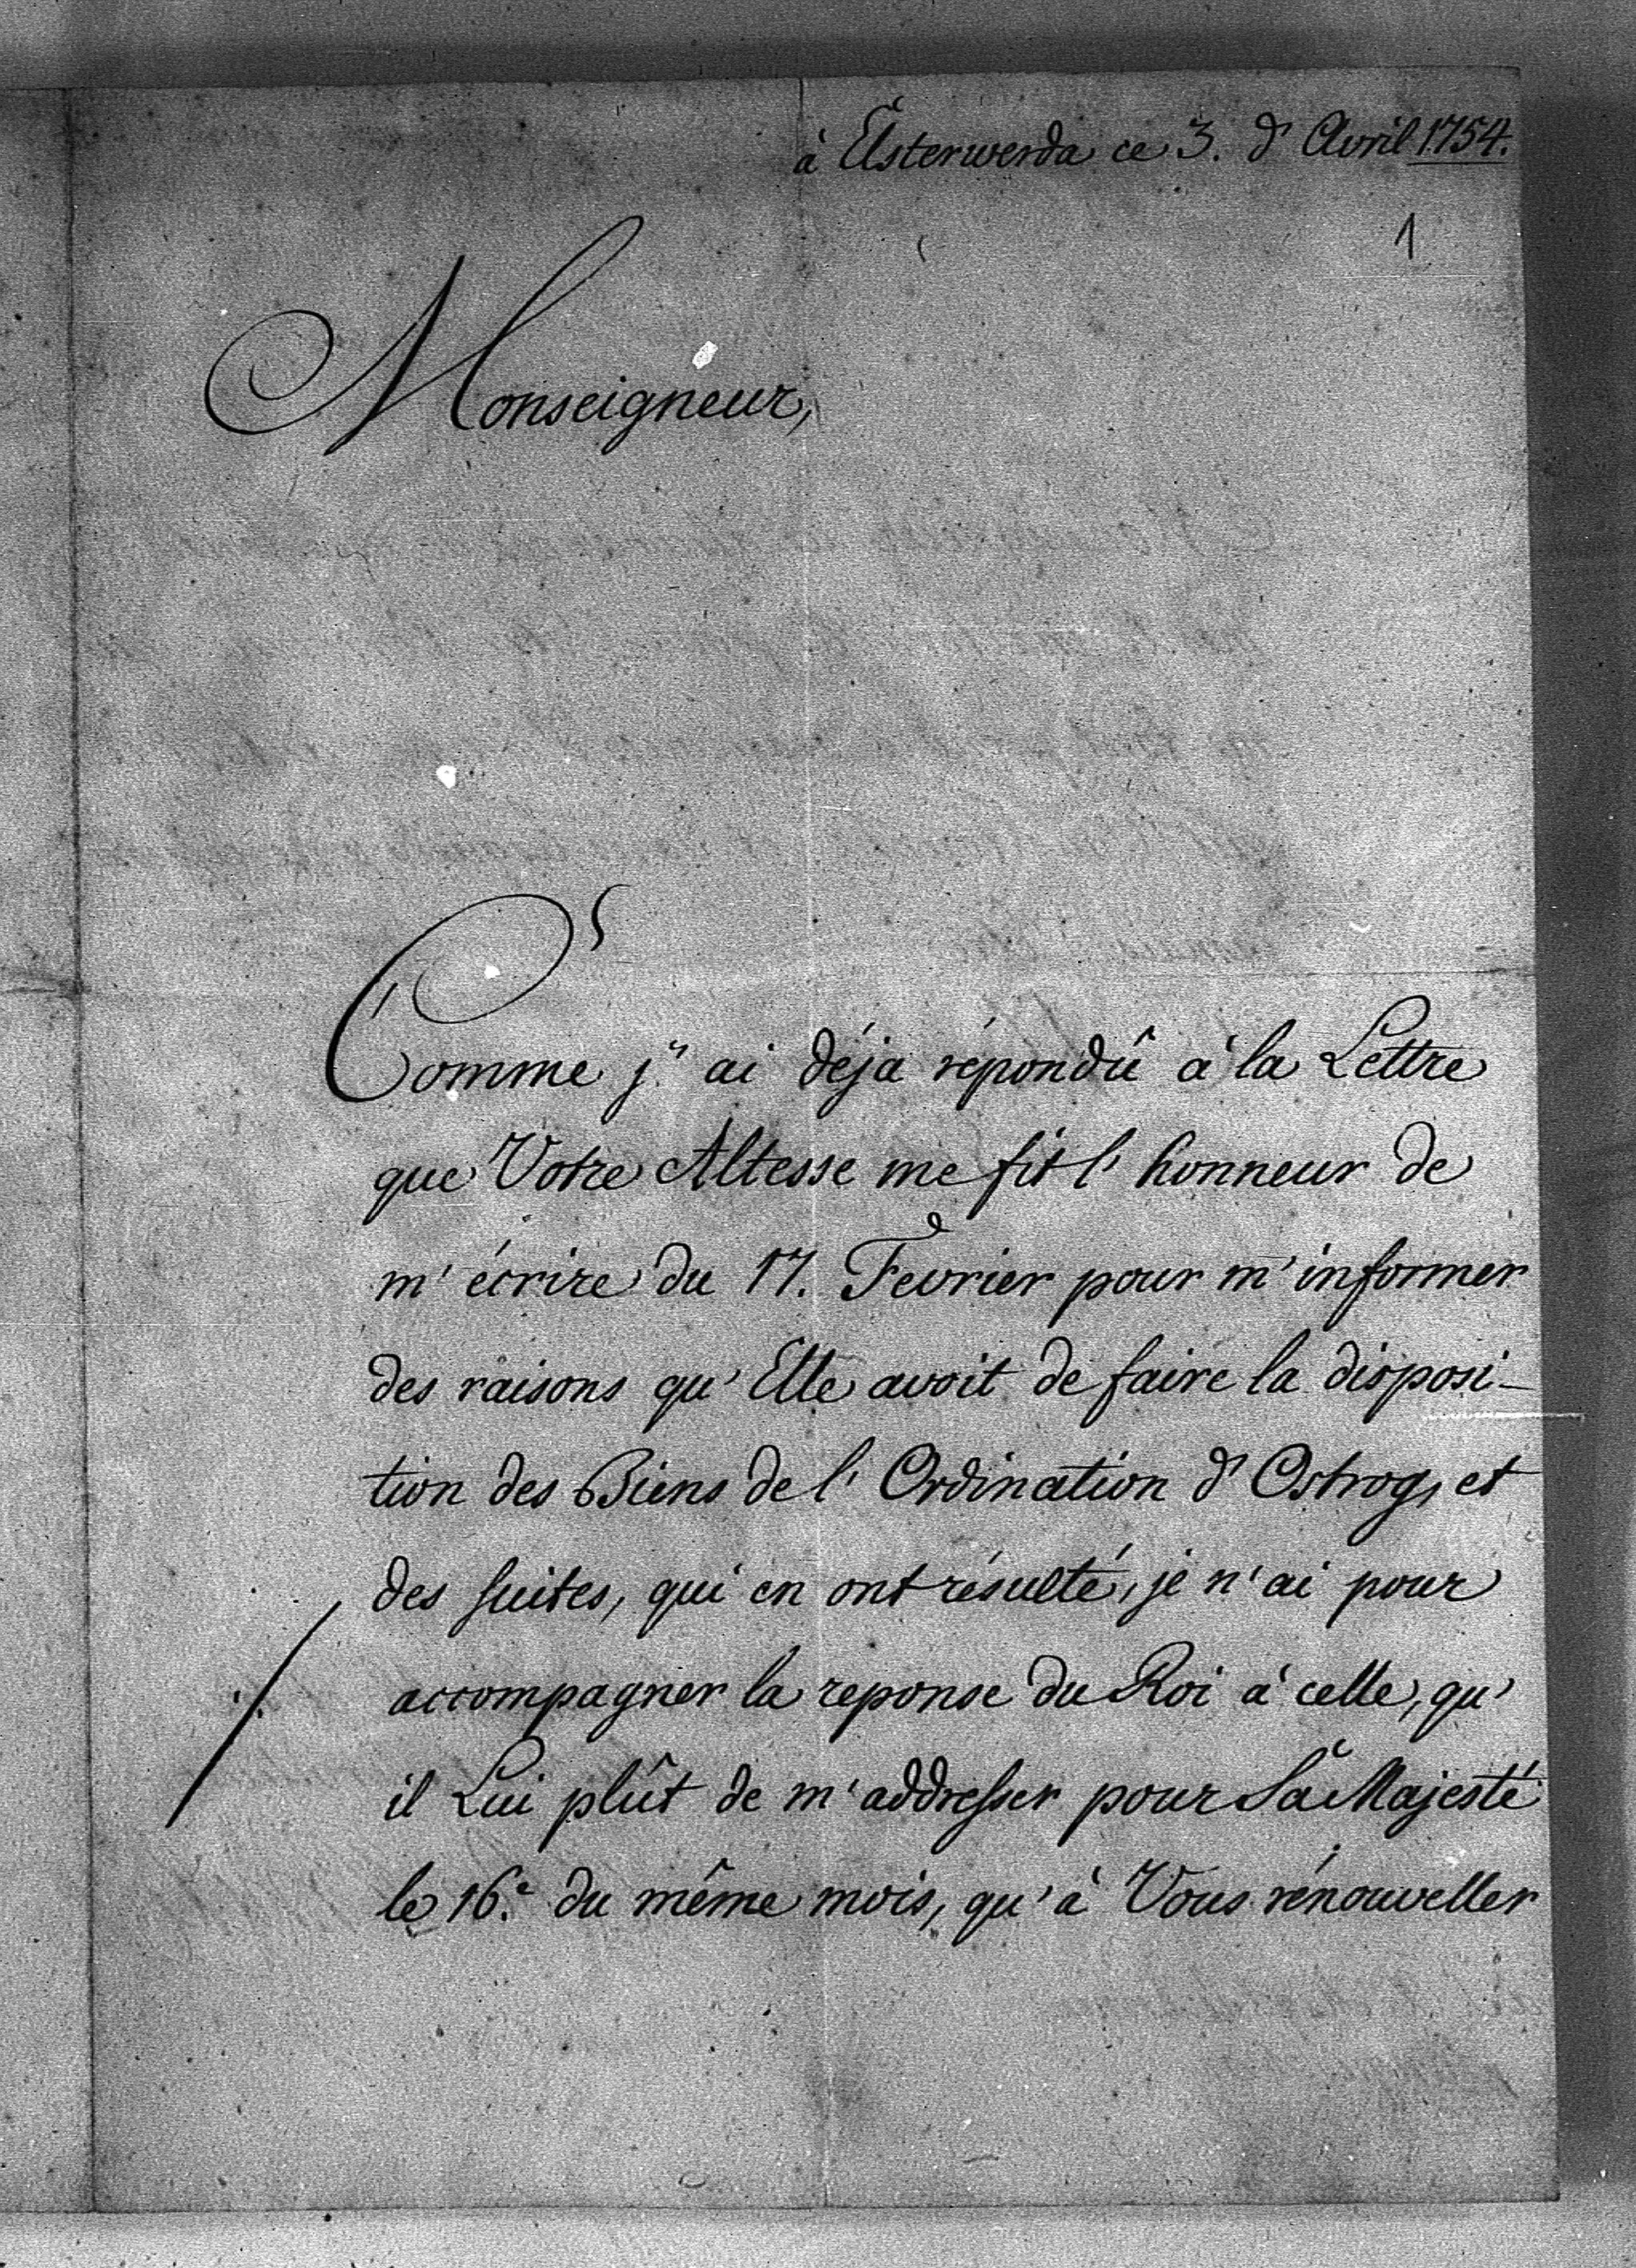 à Elsterwerda ce 3. d'Avril 1754.
1
Monseigneur,
Comme j'ai déja répondû à la Lettre
que Votre Altesse me fit l'honneur de
m'écrire du 17. Fevrier pour m'informer
des raisons qu'Elle avoit de faire la disposi-
tion des Biens de l'Ordination d'Ostrog, et
des suites, qui en ont résulté, je n'ai pour
./. accompagner la reponse du Roi à celle, qu'
il Lui plût de m'addresser pour Sa Majesté
le 16.e du même mois, qu'à Vous rénouveller